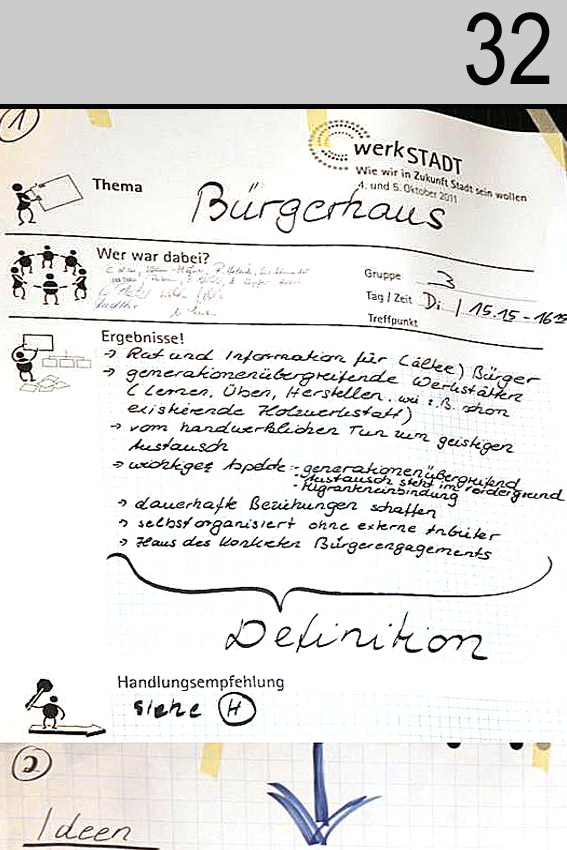 32
1
werkSTADT
Wie wir in Zukunft Stadt sein wollen
4. und 5. Oktober 2011
Thema
Bürgerhaus
Wer war dabei?
Gruppe 3
Tag / Zeit Di / 15.15 - 16
Treffpunkt
Ergebnisse!
→ Rat und Information für (ältere) Bürger
→ generationenübergreifende Werkstätten
(Lernen, Üben, Herstellen, wie z.B. schon
existierende Holzwerkstatt)
→ vom handwerklichen Tun zum geistigen
Austausch
→ wichtiger Aspekt: - generationenübergreifend
- Austausch steht im Vordergrund
- Migranteneinbindung
→ dauerhafte Beziehungen schaffen
→ selbstorganisiert ohne externe Anbieter
→ Haus des konkreten Bürgerengagements
Definition
Handlungsempfehlung
siehe H
2
Ideen